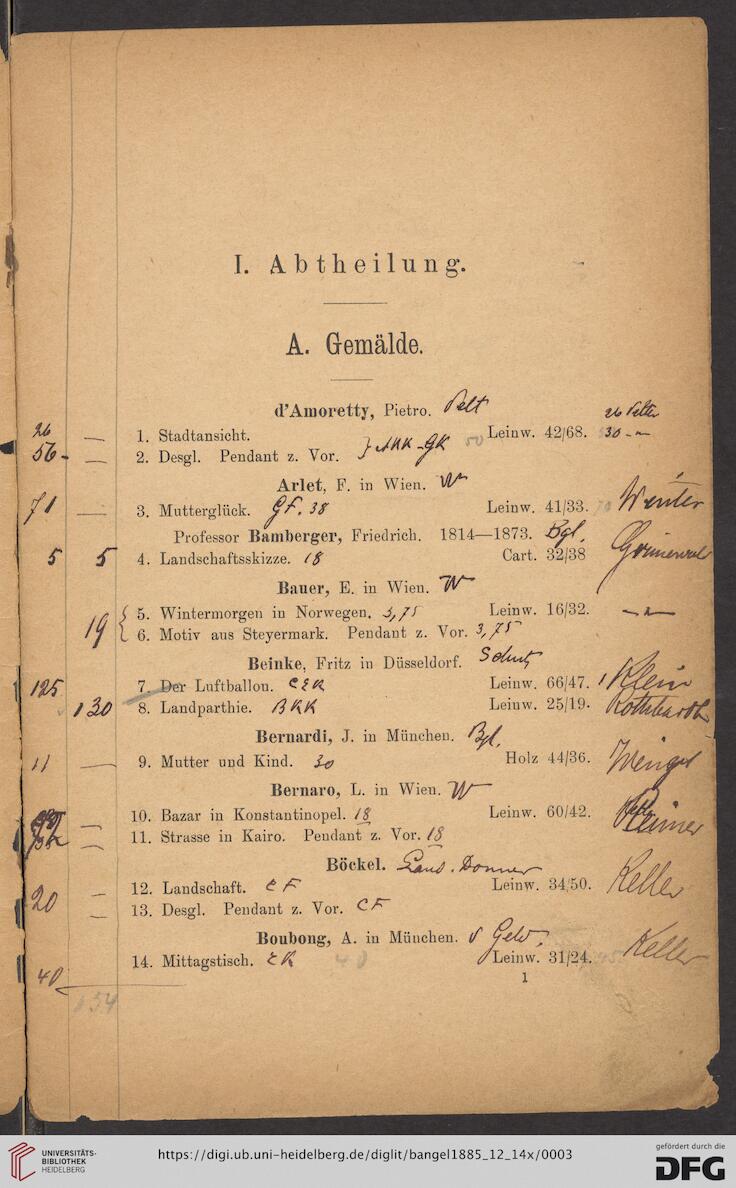 I. Abtheilung.
A. Gemälde.
d'Amoretty, Pietro. Pelt
26 1. Stadtansicht. Leinw. 42/68. 30
56 – 2. Desgl. Pendant z. Vor.
Arlet, F. in Wien. W
71 — 3. Mutterglück. GF. 38 Leinw. 41/33. Winter
Professor Bamberger, Friedrich. 1814—1873. Bgl.
5 5 4. Landschaftsskizze. 18 Cart. 32/38
Bauer, E. in Wien. W
19 { 5. Wintermorgen in Norwegen. 3,75 Leinw. 16/32.
6. Motiv aus Steyermark. Pendant z. Vor. 3,75
Beinke, Fritz in Düsseldorf.
125 7. Der Luftballon. Leinw. 66/47. Klein
130 8. Landparthie. Leinw. 25/19.
Bernardi, J. in München. Bgl.
11 — 9. Mutter und Kind. 30 Holz 44/36.
Bernaro, L. in Wien. W
— 10. Bazar in Konstantinopel. 18 Leinw. 60/42.
— 11. Strasse in Kairo. Pendant z. Vor. 18
Böckel.
20 — 12. Landschaft. CF Leinw. 34/50. Keller
— 13. Desgl. Pendant z. Vor. CF
Boubong, A. in München.
40 14. Mittagstisch. 40 Leinw. 31/24. Keller
154
1
UNIVERSITÄTS-
BIBLIOTHEK
HEIDELBERG
https://digi.ub.uni-heidelberg.de/diglit/bangel1885_12_14x/0003
gefördert durch die
DFG